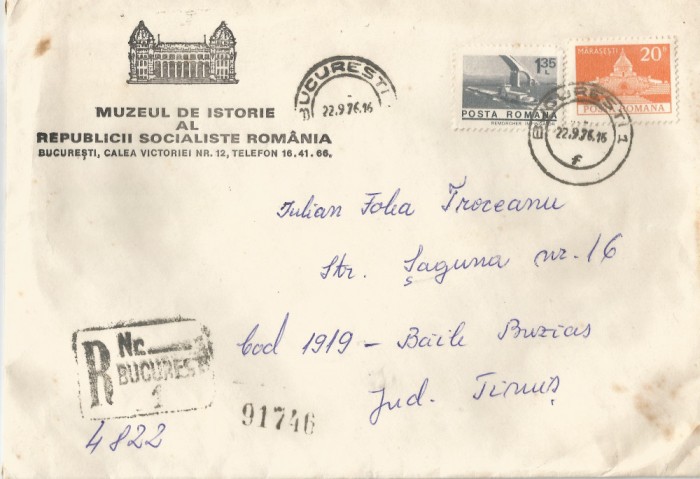 MUZEUL DE ISTORIE
AL
REPUBLICII SOCIALISTE ROMÂNIA
BUCUREŞTI, CALEA VICTORIEI NR. 12, TELEFON 16. 41. 66.
BUCURESTI
22.9.76.16
1,35 L
POSTA ROMANA
REMORCHER
MĂRĂŞEŞTI
20 B
POSTA ROMANA
BUCURESTI 1
22.9.76.16
f
Iulian Folea Troceanu
Str. Şaguna nr. 16
Cod 1919 - Băile Buziaş
Jud. Timiş
R Nr.
BUCURESTI
1
4822
91746